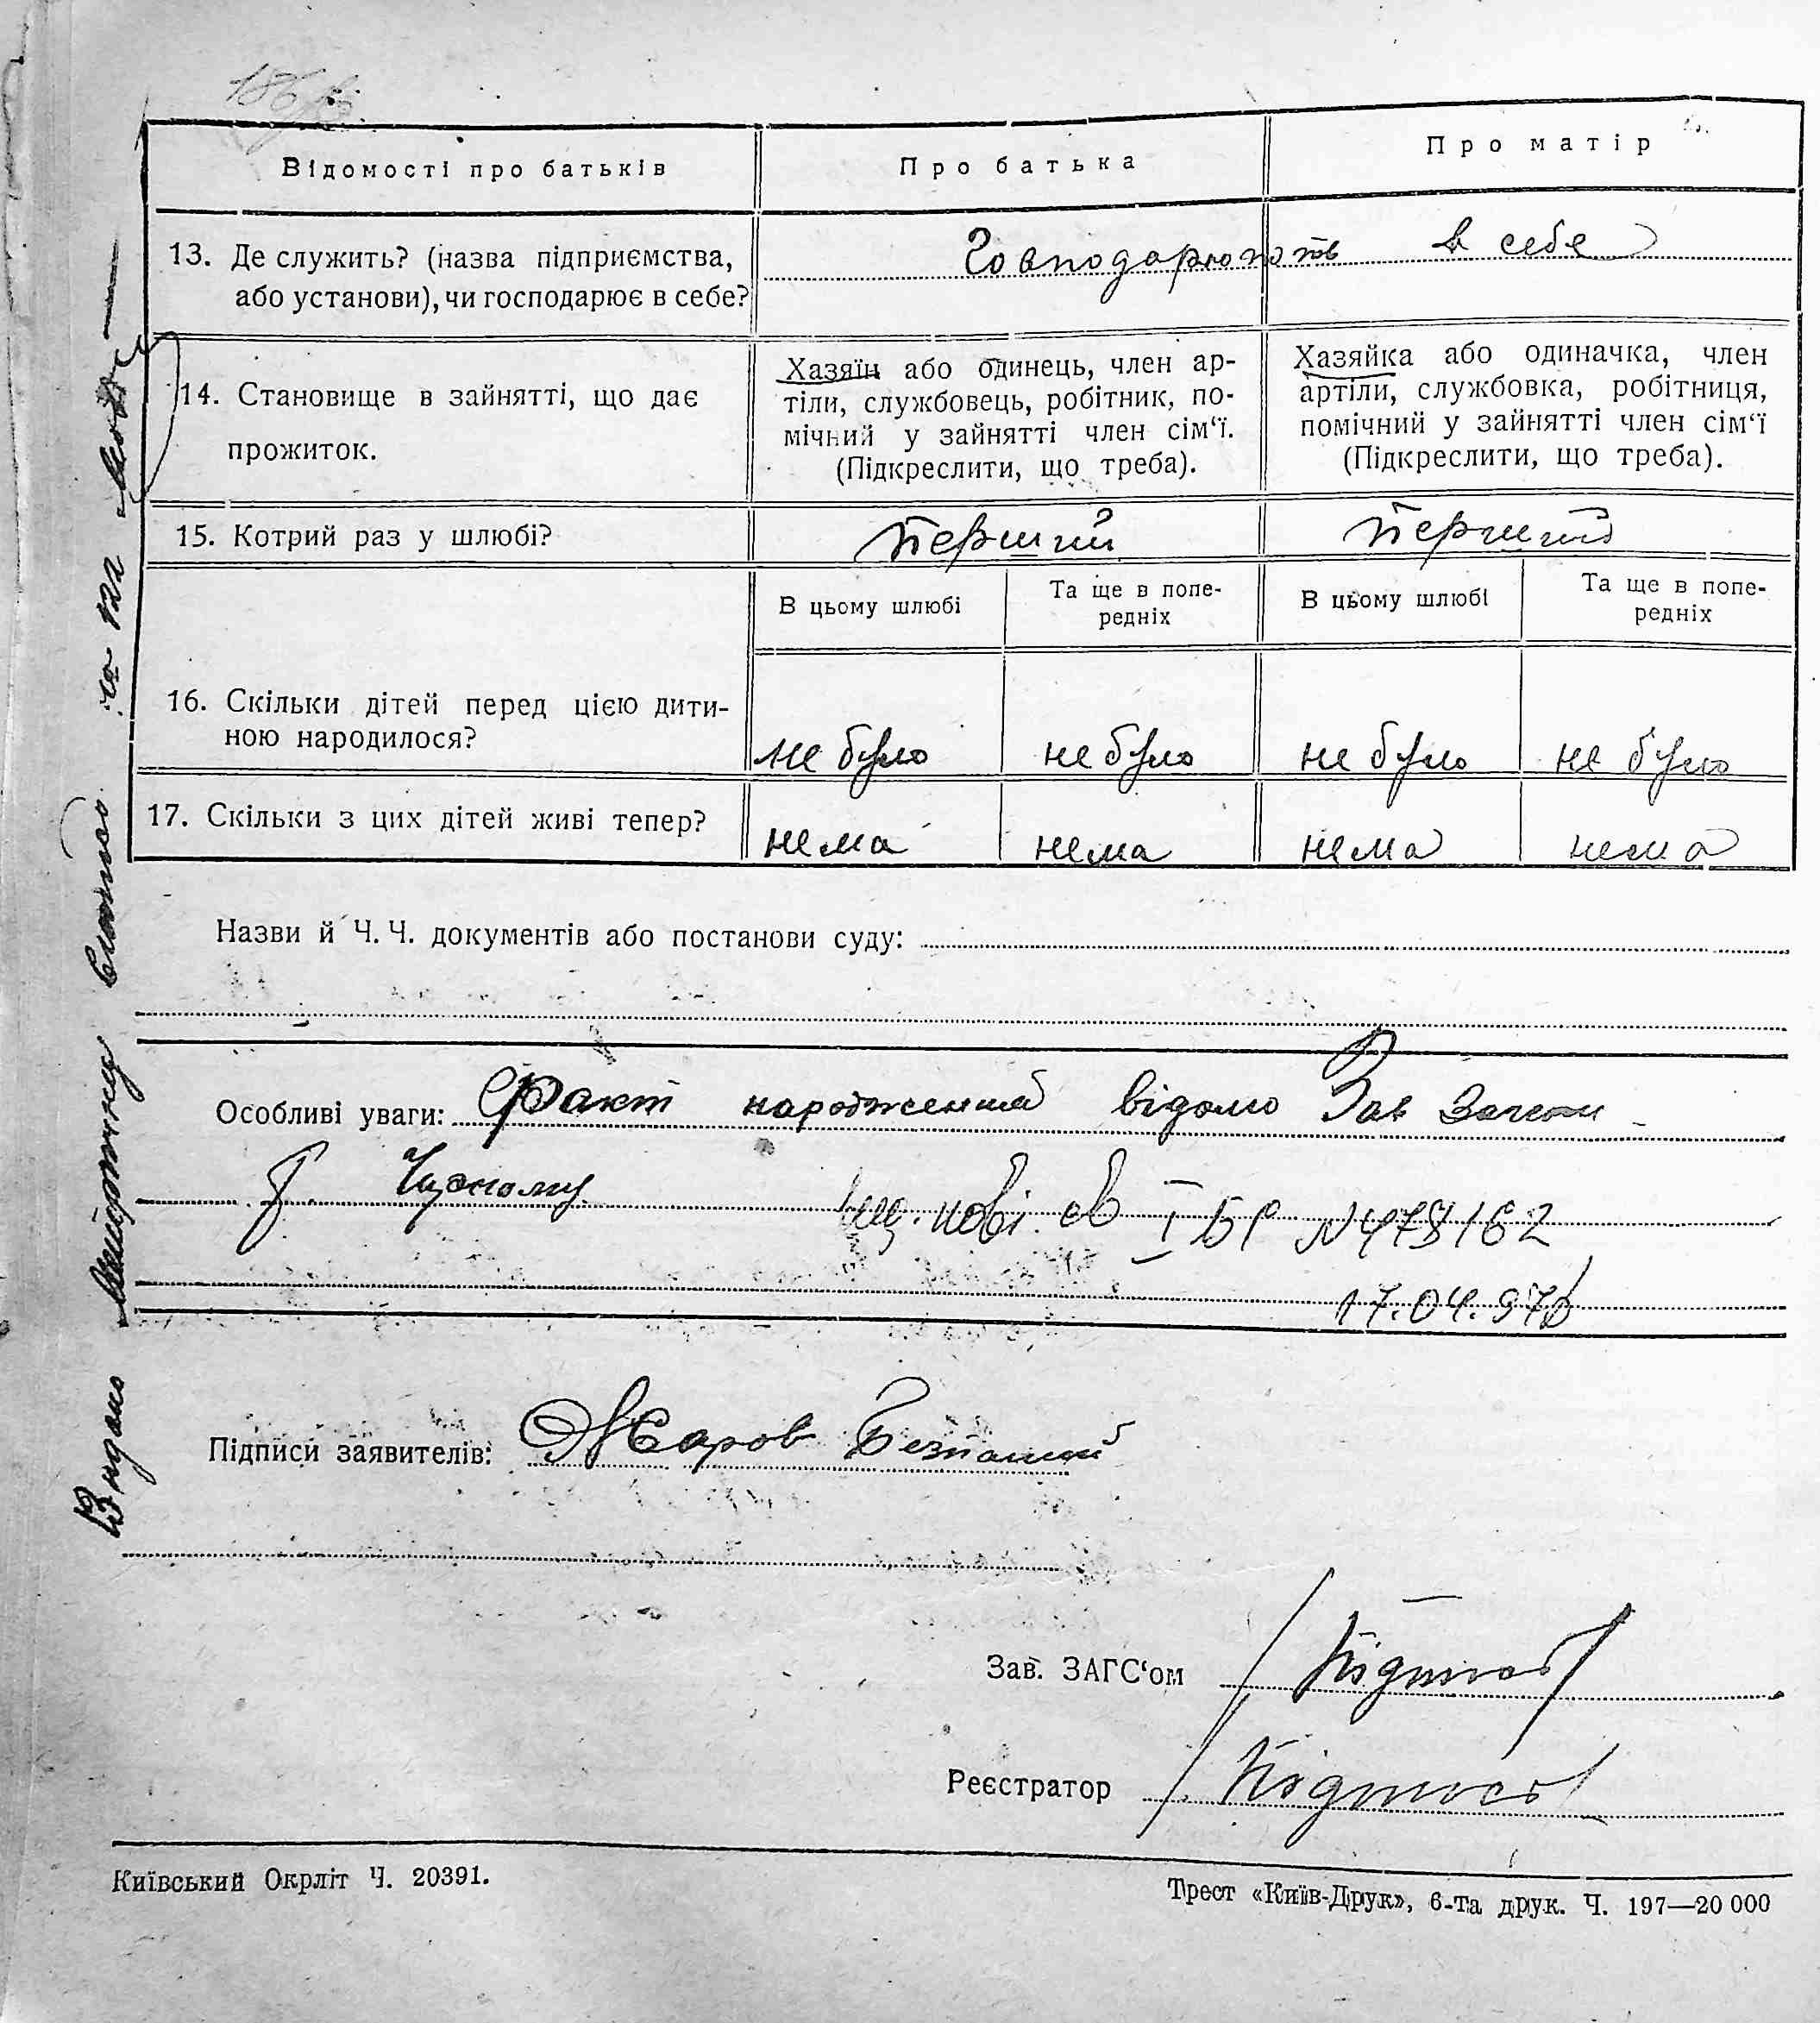 Відомості про батьків
Про батька
Про матір
13. Де служить? (назва підприємства,
або установи), чи господарює в себе?
Господарюють в себе
14. Становище в зайнятті, що дає
прожиток.
Хазяїн або одинець, член ар-
тіли, службовець, робітник, по-
мічний у зайнятті член сім‘ї.
(Підкреслити, що треба).
Хазяйка або одиначка, член
артіли, службовка, робітниця,
помічний у зайнятті член сім‘ї
(Підкреслити, що треба).
15. Котрий раз у шлюбі?
Перший
Перший
В цьому шлюбі
Та ще в попе-
редніх
В цьому шлюбі
Та ще в попе-
редніх
16. Скільки дітей перед цією дити-
ною народилося?
не було
не було
не було
не було
17. Скільки з цих дітей живі тепер?
нема
нема
нема
нема
Назви й Ч. Ч. документів або постанови суду:
Особливі уваги: Факт народження відомо Зав
І БР N 478162
17.04.97
Підписи заявителів:
Зав. ЗАГС‘ом Підпис
Реєстратор Підпис
Київський Окрліт Ч. 20391.
Трест «Київ-Друк», 6-та друк. Ч. 197—20 000
Видано